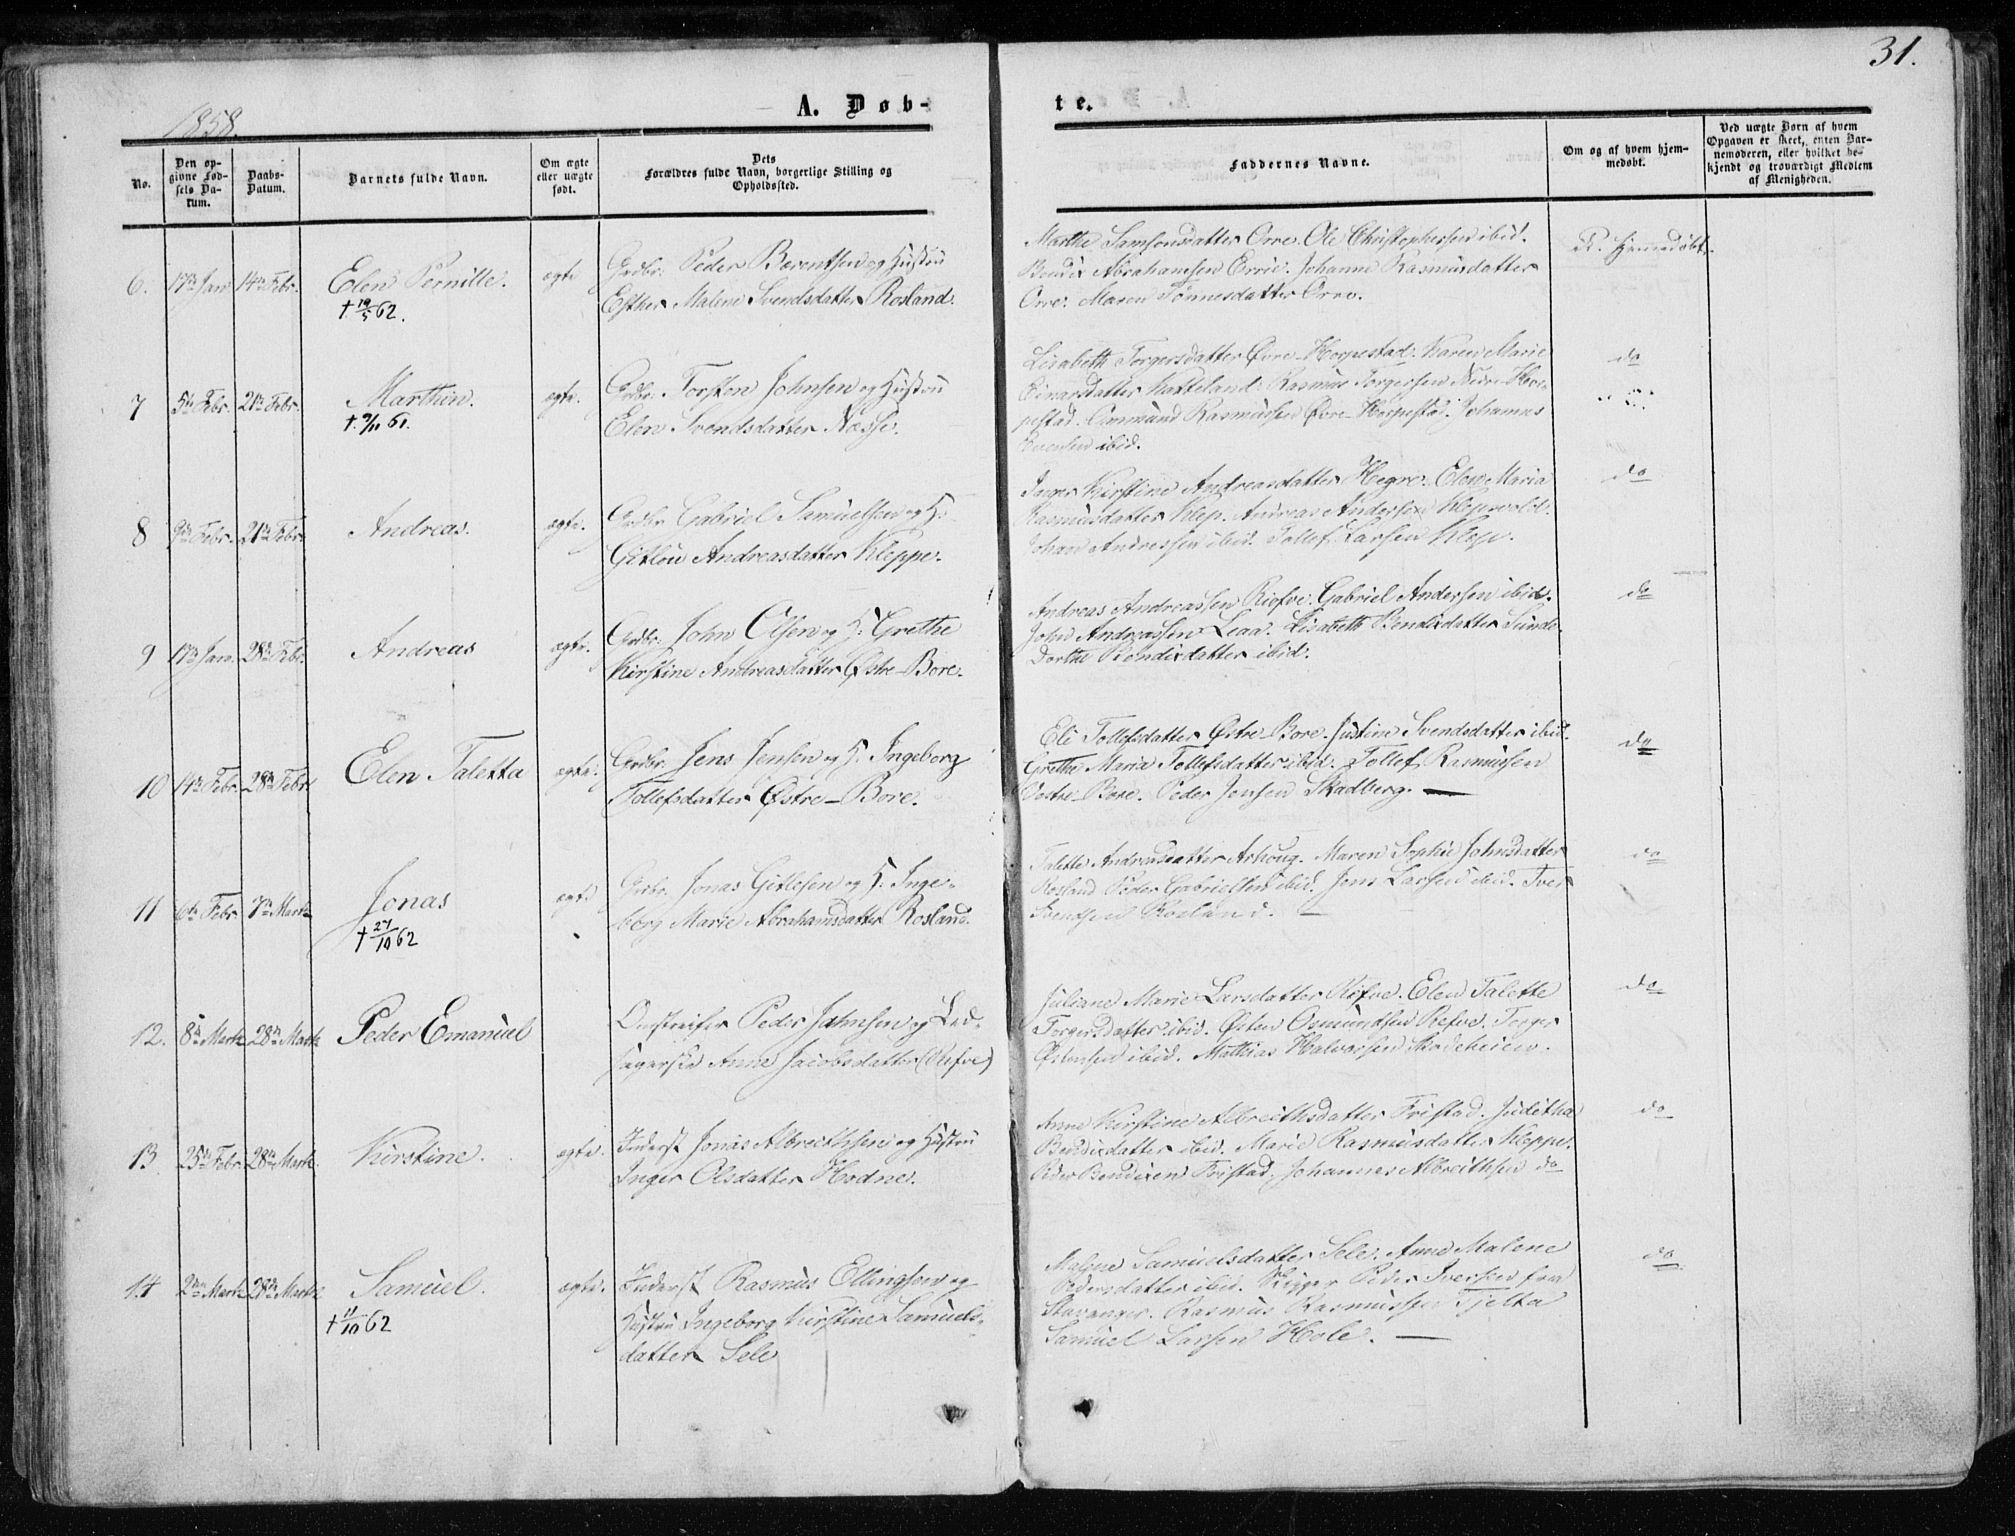 31.
1858.
A. Døb-
te.
No.
Den op-
givne Fød-
sels Da-
tum.
Daabs-
Datum.
Barnets fulde Navn.
Om ægte
eller uægte
født.
Dets
Forældres fulde Navn, borgerlige Stilling og
Opholdssted.
Faddernes Navne.
Om og af hvem hjem-
medøbt.
Ved uægte Børn af hvem
Opgaven er skeet, enten Bar-
nemoderen, eller hvilket be-
kjendt og troværdigt Medlem
af Menigheden.
6. 17de Jan 14de Febr. Elen Pernille. ægte
† 19/5 62.
Grdbr. Peder Bærentsen og Hustru
Esther Malene Svendsdatter Rosland.
Marthe Samsonsdatter Orre. Ole Christophersen ibid.
Bendix Abrahamsen Errie. Johanne Rasmusdatter
Orre. Maren Tønnesdatter Orre.
Hjemmedøbt.
7 5te Febr. 21de Febr. Marthin. ægte.
† 9/11 61.
Grdbr. Torsten Johnsen og Hustru
Elen Svendsdatter Næsse.
Lisabeth Torgersdatter Øvre-Horpestad. Karen Marie
Einarsdatter Katteland. Rasmus Torgersen Nedre-Hor-
pestad. Ommund Rasmussen Øvre-Horpestad. Johannes
Evensen ibid.
do
8 9de Febr. 21de Febr. Andreas. ægte.
Grdbr Gabriel Samuelsen og H.
Gitlou Andreasdatter Kleppe.
Inger Kirstine Andreasdatter Hegre. Elen Maria
Rasmusdatter Klep. Andreas Andersen Klepvold.
Johan Andressen ibid. Tollef Larsen Klep.
do
9 17de Jan. 28de Febr. Andreas ægte.
Grdbr. John Olsen og H. Grethe
Kirstine Andreasdatter Østre-Bore.
Andreas Andreassen Riefve. Gabriel Andersen ibid.
John Andreassen Leaa. Lisabeth Bendixdatter Sunde.
Dorthe Bendixdatter ibid.
do
10 14de Febr. 28de Febr Elen Taletta ægte.
Grdbr. Jens Jensen og H. Ingeborg
Tollefsdatter Østre-Bore.
Eli Tollefsdatter Østre-Bore. Justine Svendsdatter ibid.
Grethe Maria Tollefsdatter ibid. Tollef Rasmussen
Vestre-Bore. Peder Jensen Skadberg.
do
11 6te Febr. 7de Marts Jonas ægte
† 27/10 62
Grdbr. Jonas Gitlesen og H. Inge-
borg Marie Abrahamsdatter Rosland.
Talette Andreasdatter Arhoug. Maren Sophie Johnsdatter
Rosland Peder Gabrielsen ibid. Jens Larsen ibid. Iver
Svendsen Rosland.
do
12. 8de Marts 28de Marts Peder Emanuel
Omstreifer Peder Johnsen og Led-
sagerske Anne Jacobsdatter (Refve)
Juliane Marie Larsdatter Refve. Elen Talette
Torgersdatter ibid. Østen Osmundsen Refve. Torger
Østensen ibid. Mathias Halvorsen Skodeheien.
do
13 25de Febr. 28de Marts. Kirstine. ægte.
Inderst Jonas Albreithsen og Hustru
Inger Olsdatter Hodne.
Anne Kirstine Albreithsdatter Fristad. Juditha
Bendixdatter ibid. Marie Rasmusdatter Kleppe.
Peder Bendixen Fristad. Johannes Albreithsen do
do
14 2den Marts 28de Marts Samuel. ægte.
† 11/10 62
Inderst Rasmus Ellingsen og
Hustru Ingeborg Kirstine Samuels-
datter Sele
Malene Samuelsdatter Sele. Anne Malene
Pedersdatter ibid. Peder Iversen fra
Stavanger. Rasmus Rasmussen Tjelta
Samuel Larsen Hole.
do